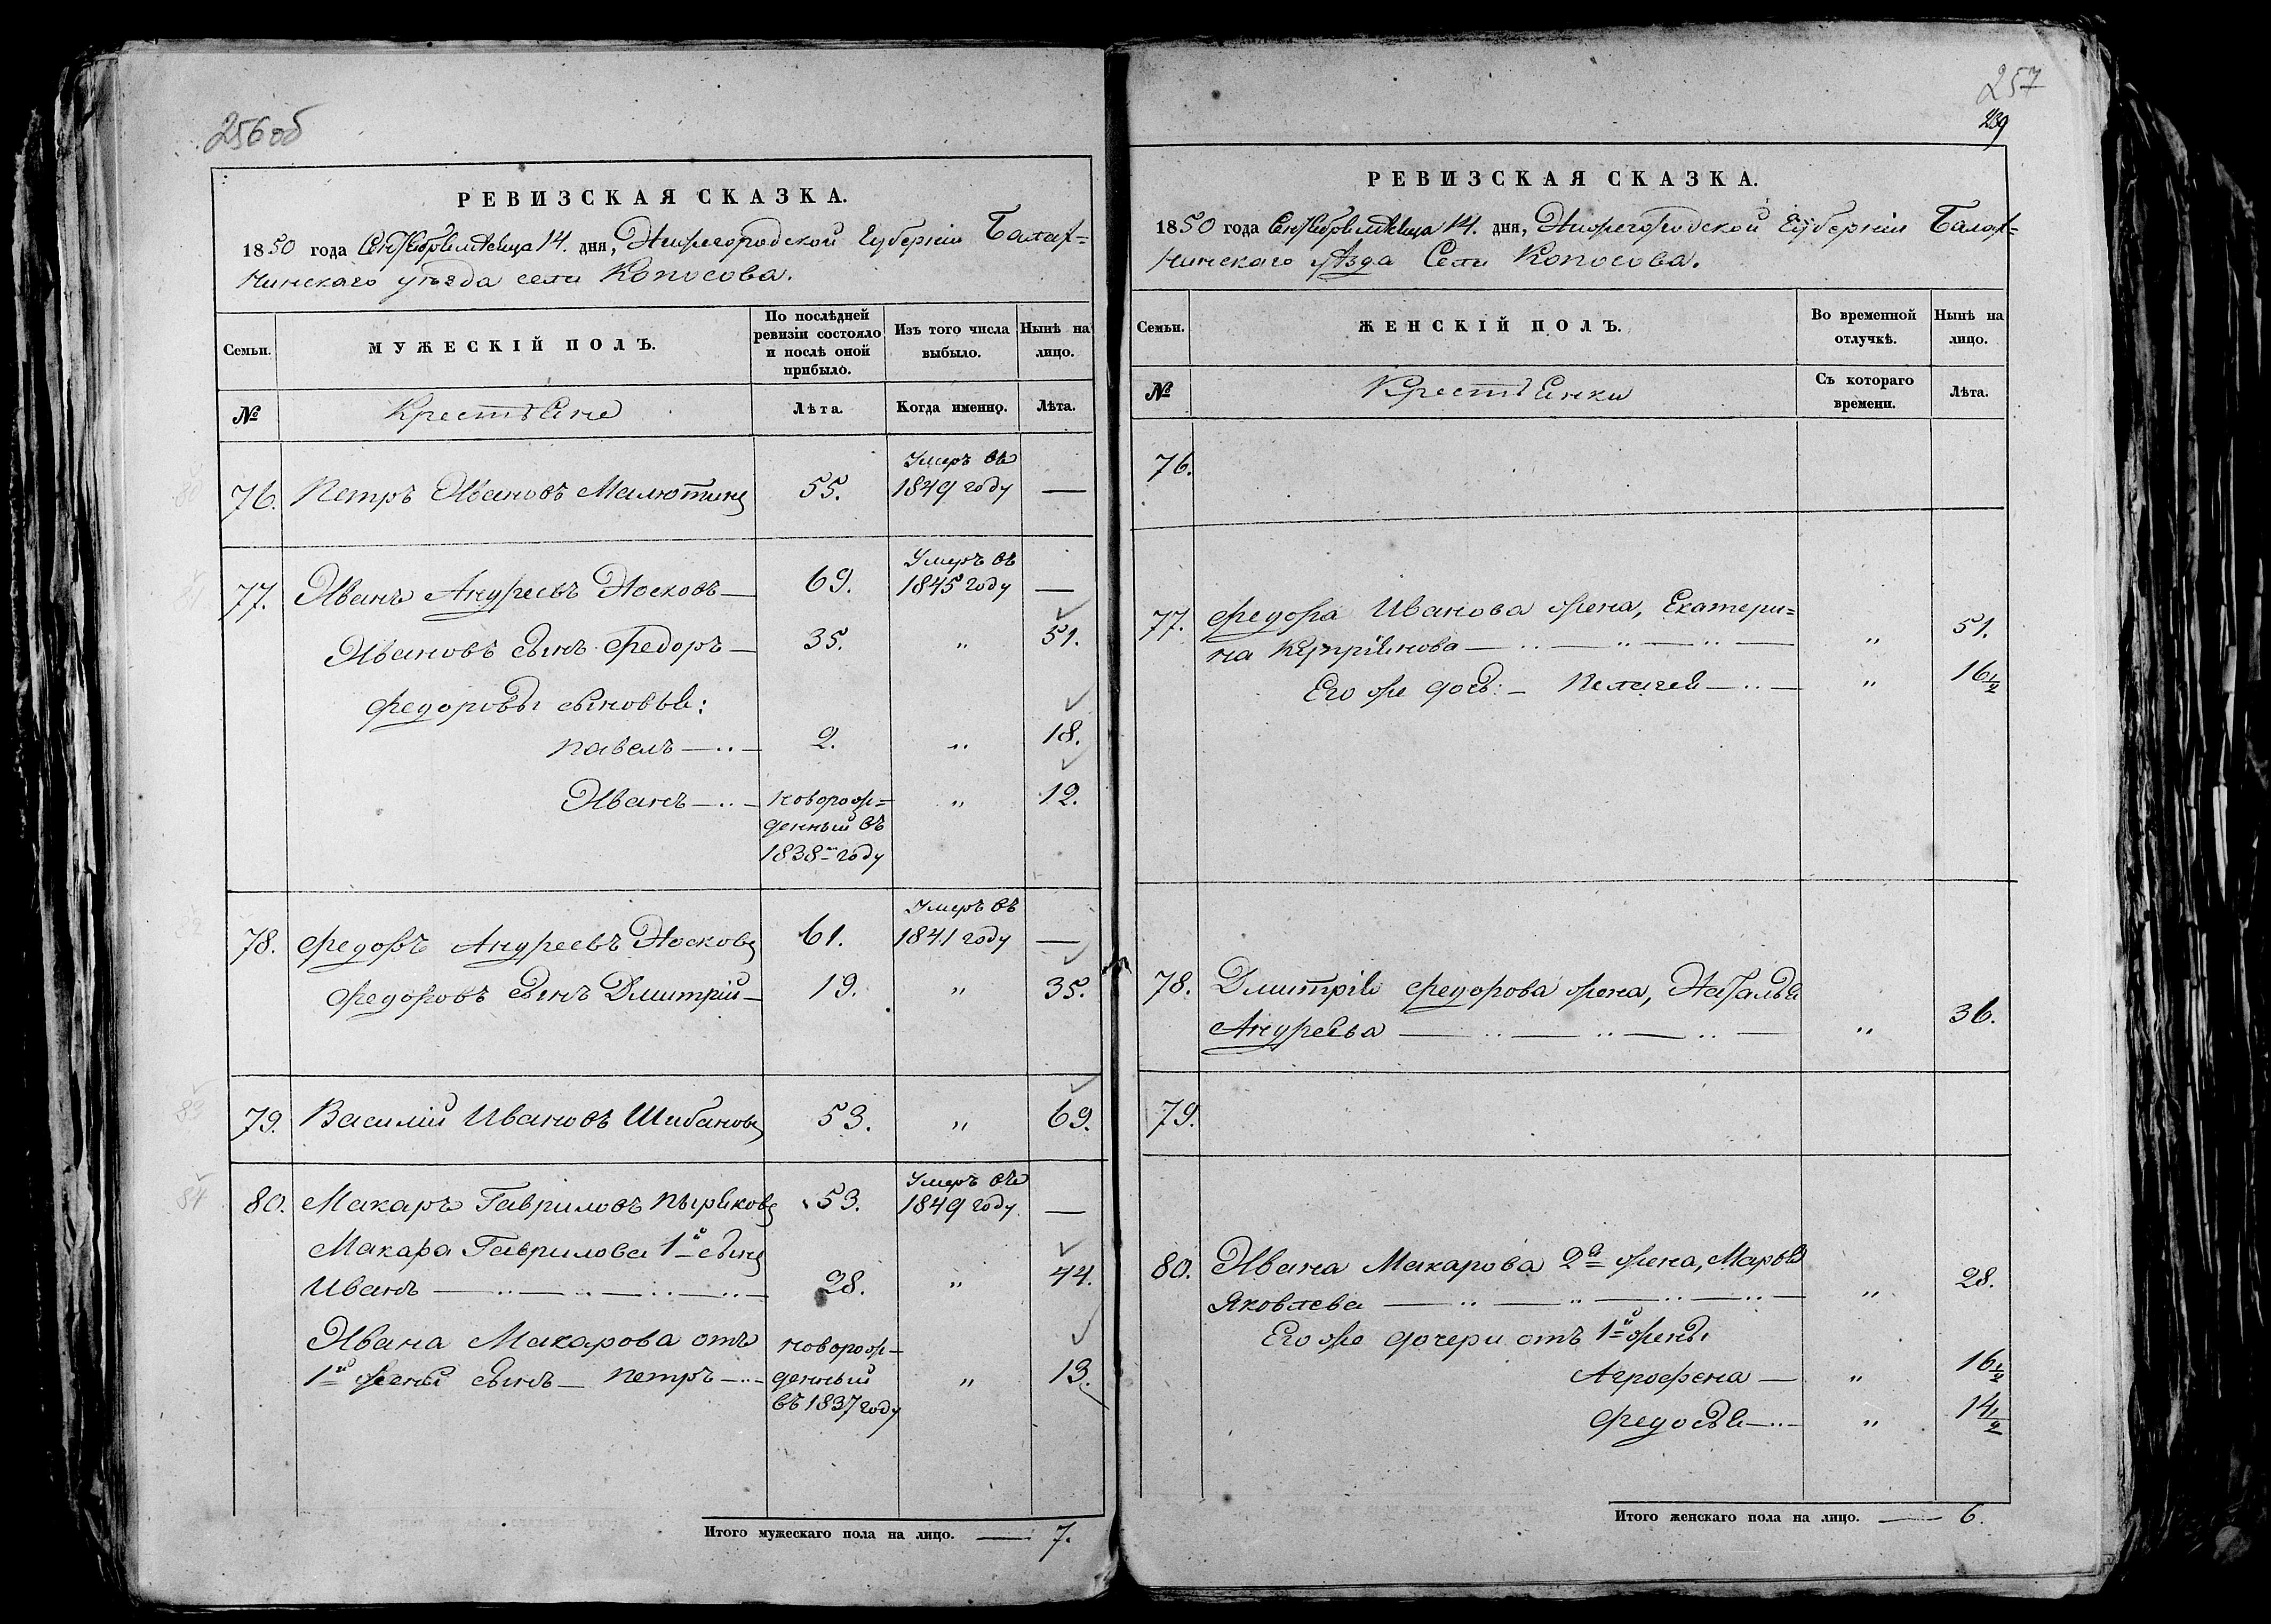 256 об
РЕВИЗСКАЯ СКАЗКА.
1850 года Сентября месяца 14. дня, Нижегородской Губернiи Балах=
нинскаго уѣзда села Копосова.
Семьи.
МУЖЕСКIЙ ПОЛЪ.
По послѣдней ревизiи состояло и послѣ оной прибыло.
Изъ того числа выбыло.
Нынѣ на лицо.
№
Крестьяне
Лѣта.
Когда именно.
Лѣта.
Умеръ въ
76. Петръ Ивановъ Малютинъ 55. 1849 году —
Умеръ въ
77. Иванъ Андреевъ Носковъ — 69. 1845 году —
Ивановъ сынъ Федоръ — 35. „ 51.
Федоровы сыновья:
Павелъ — 2. „ 18.
Иванъ — новорож= „ 12.
денный въ
1838м году
Умеръ въ
78. Федоръ Андреевъ Носковъ 61. 1841 году —
Федоровъ сынъ Дмитрiй — 19. „ 35.
79. Василiй Ивановъ Шибановъ 53. „ 69.
Умеръ въ
80. Макаръ Гавриловъ Пыряковъ 53. 1849 году —
Макара Гаврилова 1й сынъ
Иванъ — 28. „ 44.
Ивана Макарова отъ новорож-
1й жены сынъ — Петръ — денный „ 13.
въ 1837 году
Итого мужескаго пола на лицо. — 7.
257
239
РЕВИЗСКАЯ СКАЗКА.
1850 года Сентября месяца 14. дня, Нижегородской Губернiи Балах=
нинскаго уѣзда Села Копосова.
Семьи.
ЖЕНСКIЙ ПОЛЪ.
Во временной отлучкѣ.
Нынѣ на лицо.
№
Крестьянки
Съ котораго времени.
Лѣта.
76.
77. Федора Иванова жена, Екатери=
на Купрiянова — „ 51.
Его же дочь: — Пелагея — „ 16½
78. Дмитрiя Федорова жена, Наталья
Андреева — „ 36.
79.
80. Ивана Макарова 2я жена, Марья
Яковлева — „ 28.
Его же дочери отъ 1й жены
Агрофена — „ 16½
Федосья — „ 14½
Итого женскаго пола на лицо. — 6.